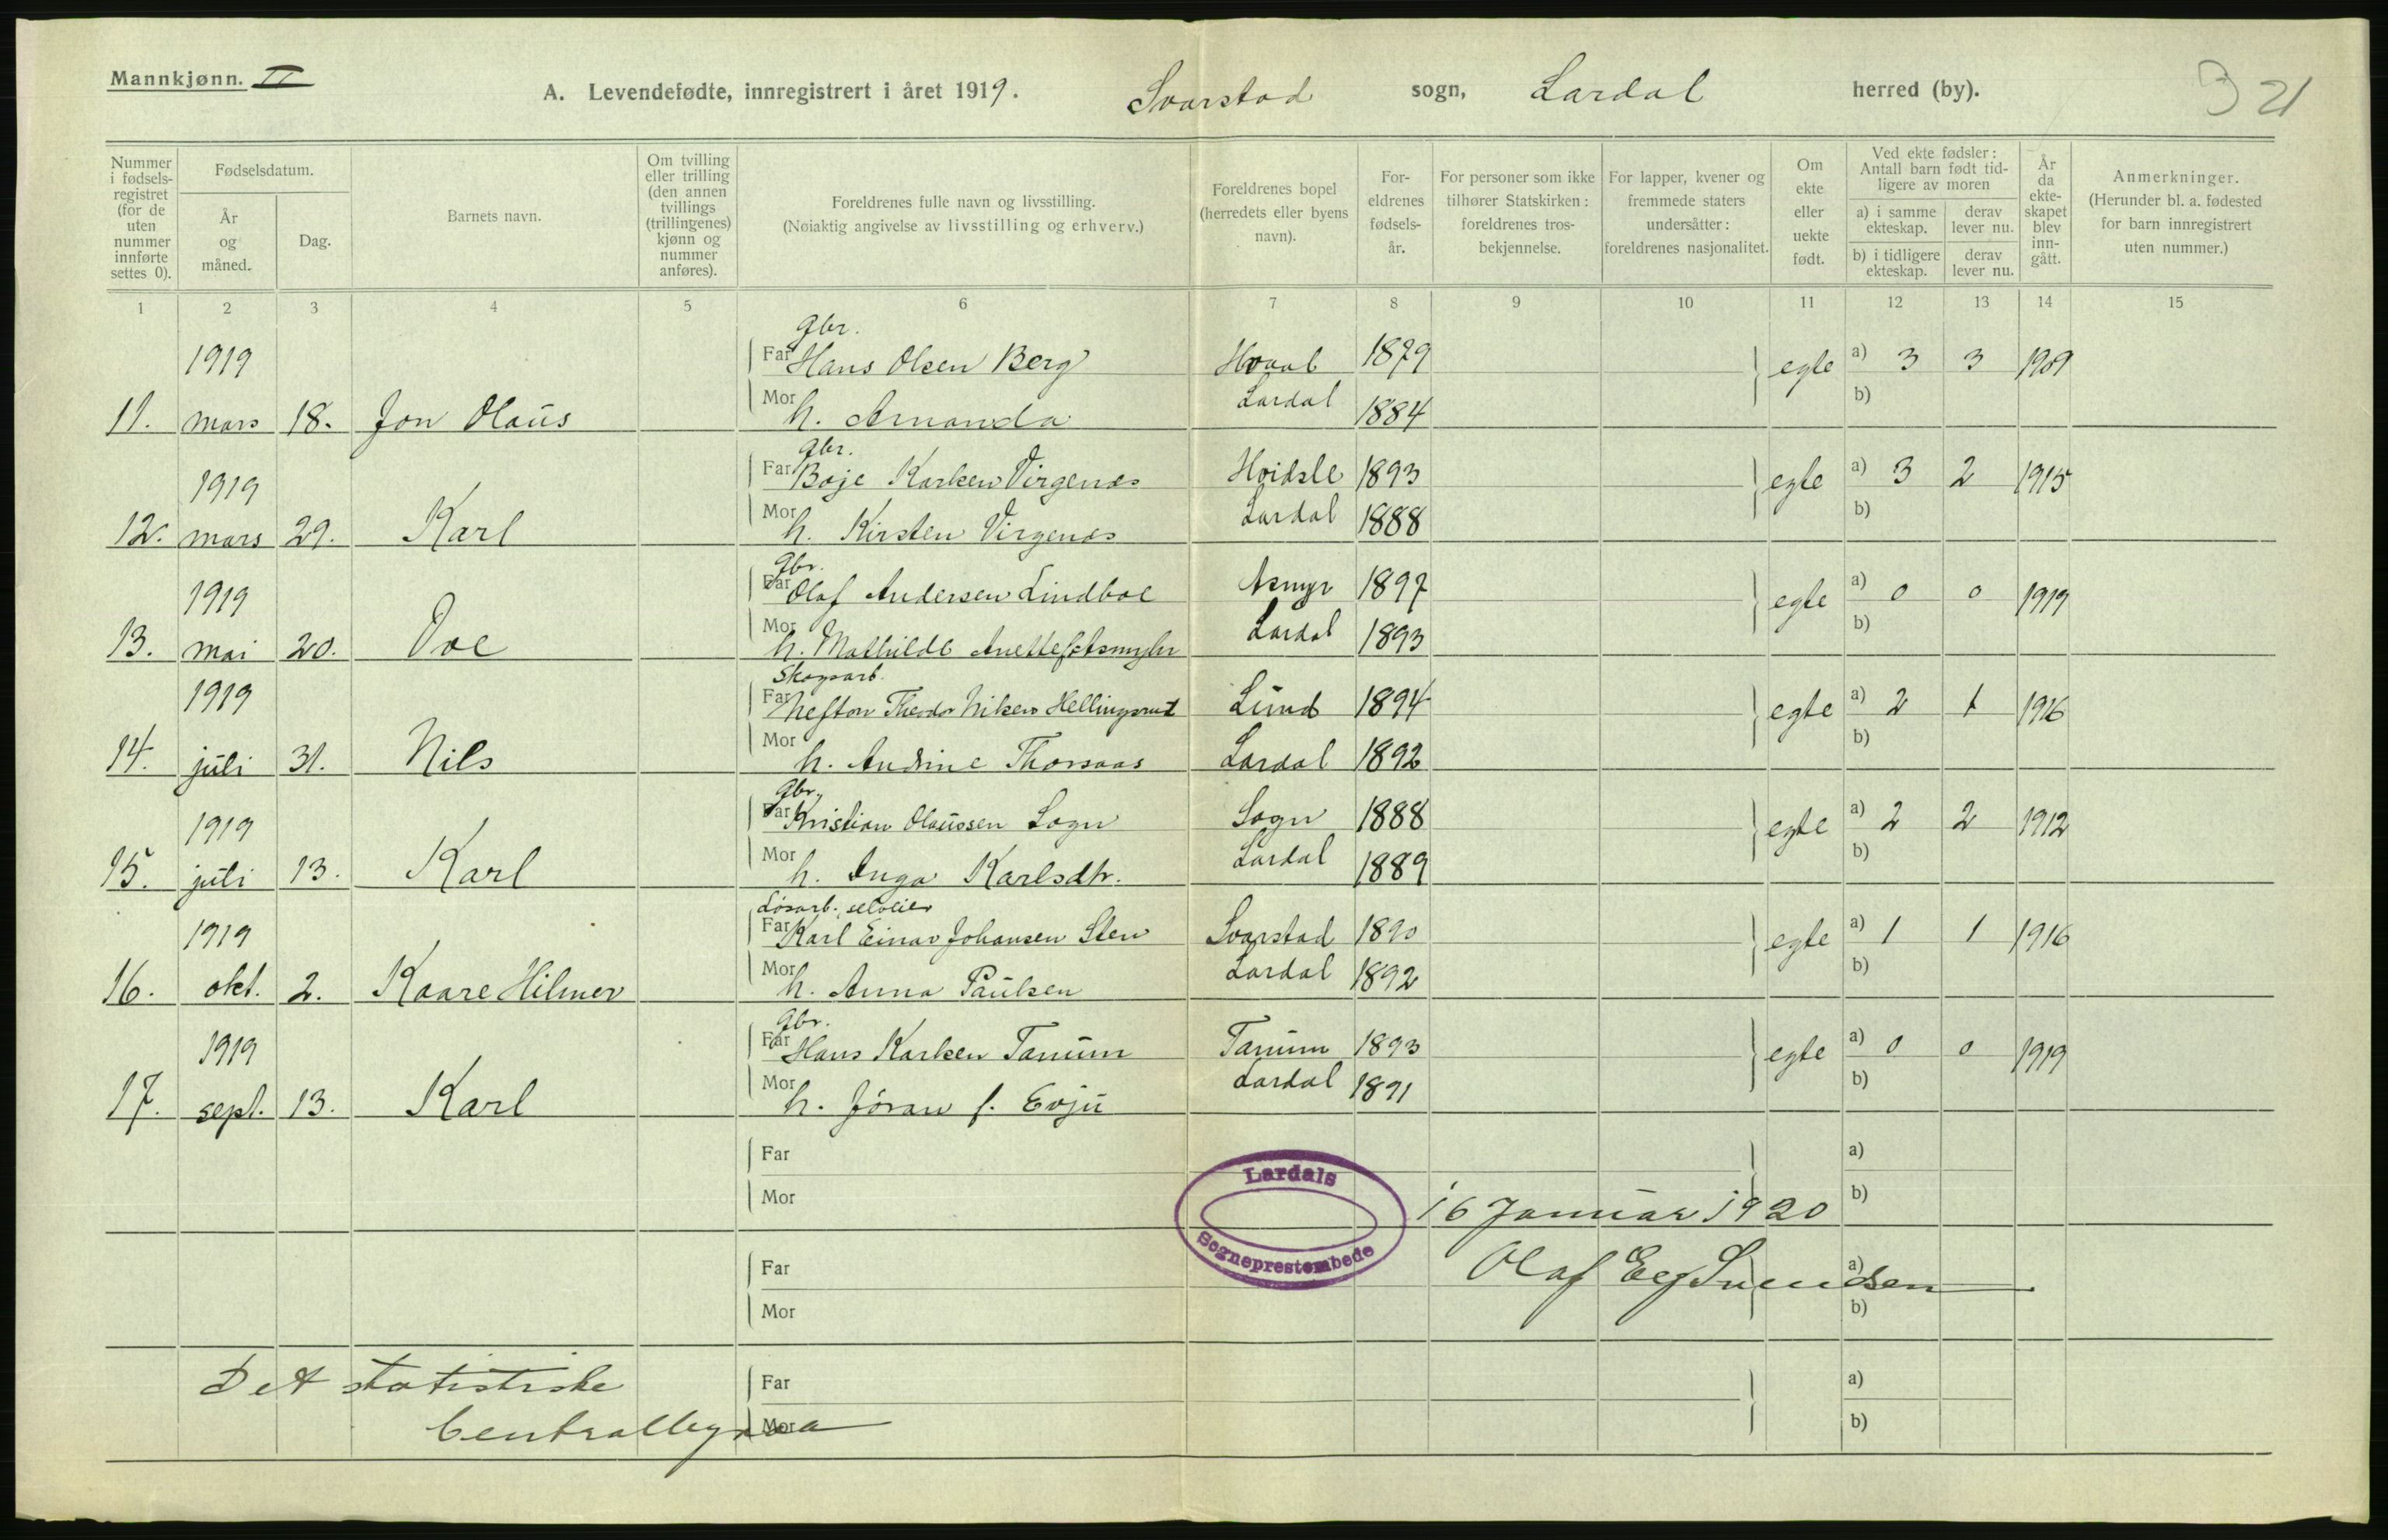 Mannkjønn. II
A. Levendefødte, innregistrert i året 1919. Svarstad sogn, Lardal herred (by). 21
Nummer i fødsels-registret (for de uten nummer innførte settes 0).
Fødselsdatum.
År og måned.
Dag.
Barnets navn.
Om tvilling eller trilling (den annen tvillings (trillingenes) kjønn og nummer anføres).
Foreldrenes fulle navn og livsstilling.
(Nøiaktig angivelse av livsstilling og erhverv.)
Foreldrenes bopel (herredets eller byens navn).
For-eldrenes fødsels-år.
For personer som ikke tilhører Statskirken: foreldrenes tros-bekjennelse.
For lapper, kvener og fremmede staters undersåtter: foreldrenes nasjonalitet.
Om ekte eller uekte født.
Ved ekte fødsler: Antall barn født tid-ligere av moren
a) i samme ekteskap.
derav lever nu.
b) i tidligere ekteskap.
derav lever nu.
År da ekte-skapet blev inn-gått.
Anmerkninger.
(Herunder bl. a. fødested for barn innregistrert uten nummer.)
1 2 3 4 5 6 7 8 9 10 11 12 13 14 15
Gbr.
1919 Far Hans Olsen Berg Hvaal 1879 egte a) 3 3 1909
11. mars 18. Jon Olaus Mor h. Amanda Lardal 1884 b)
Gbr.
1919 Far Boje Karlsen Virgenes Hvidsle 1893 egte a) 3 2 1915
12. mars 29. Karl Mor h. Kirsten Virgenes Lardal 1888 b)
Gbr.
1919 Far Olaf Andersen Lindboe Asmyr 1897 egte a) 0 0 1919
13. mai 20. Ove Mor h. Mathilde Anette Lardal 1893 b)
Skogsarb.
1919 Far Nefton Theodor Nilsen Hellingsrud Lund 1894 egte a) 2 1 1916
14. juli 31. Nils Mor h. Andrine Thorsaas Lardal 1892 b)
Gbr.
1919 Far Kristian Olaussen Sogn Sogn 1888 egte a) 2 2 1912
15. juli 13. Karl Mor h. Inga Karlsdtr. Lardal 1889 b)
Løsarb. selveier
1919 Far Karl Einar Johansen Sten Svarstad 1890 egte a) 1 1 1916
16. okt. 2. Kaare Hilmer Mor h. Anna Paulsen Lardal 1892 b)
Gbr.
1919 Far Hans Karlsen Tanum Tanum 1893 egte a) 0 0 1919
17. sept. 13. Karl Mor h. Jöran f. Evju Lardal 1891 b)
Far a)
Lardals
Sogneprestembede
Mor 16 Januar 1920 b)
Far Olaf Eeg Svendsen a)
Mor b)
Det statistiske Far a)
Centralbyraa Mor b)